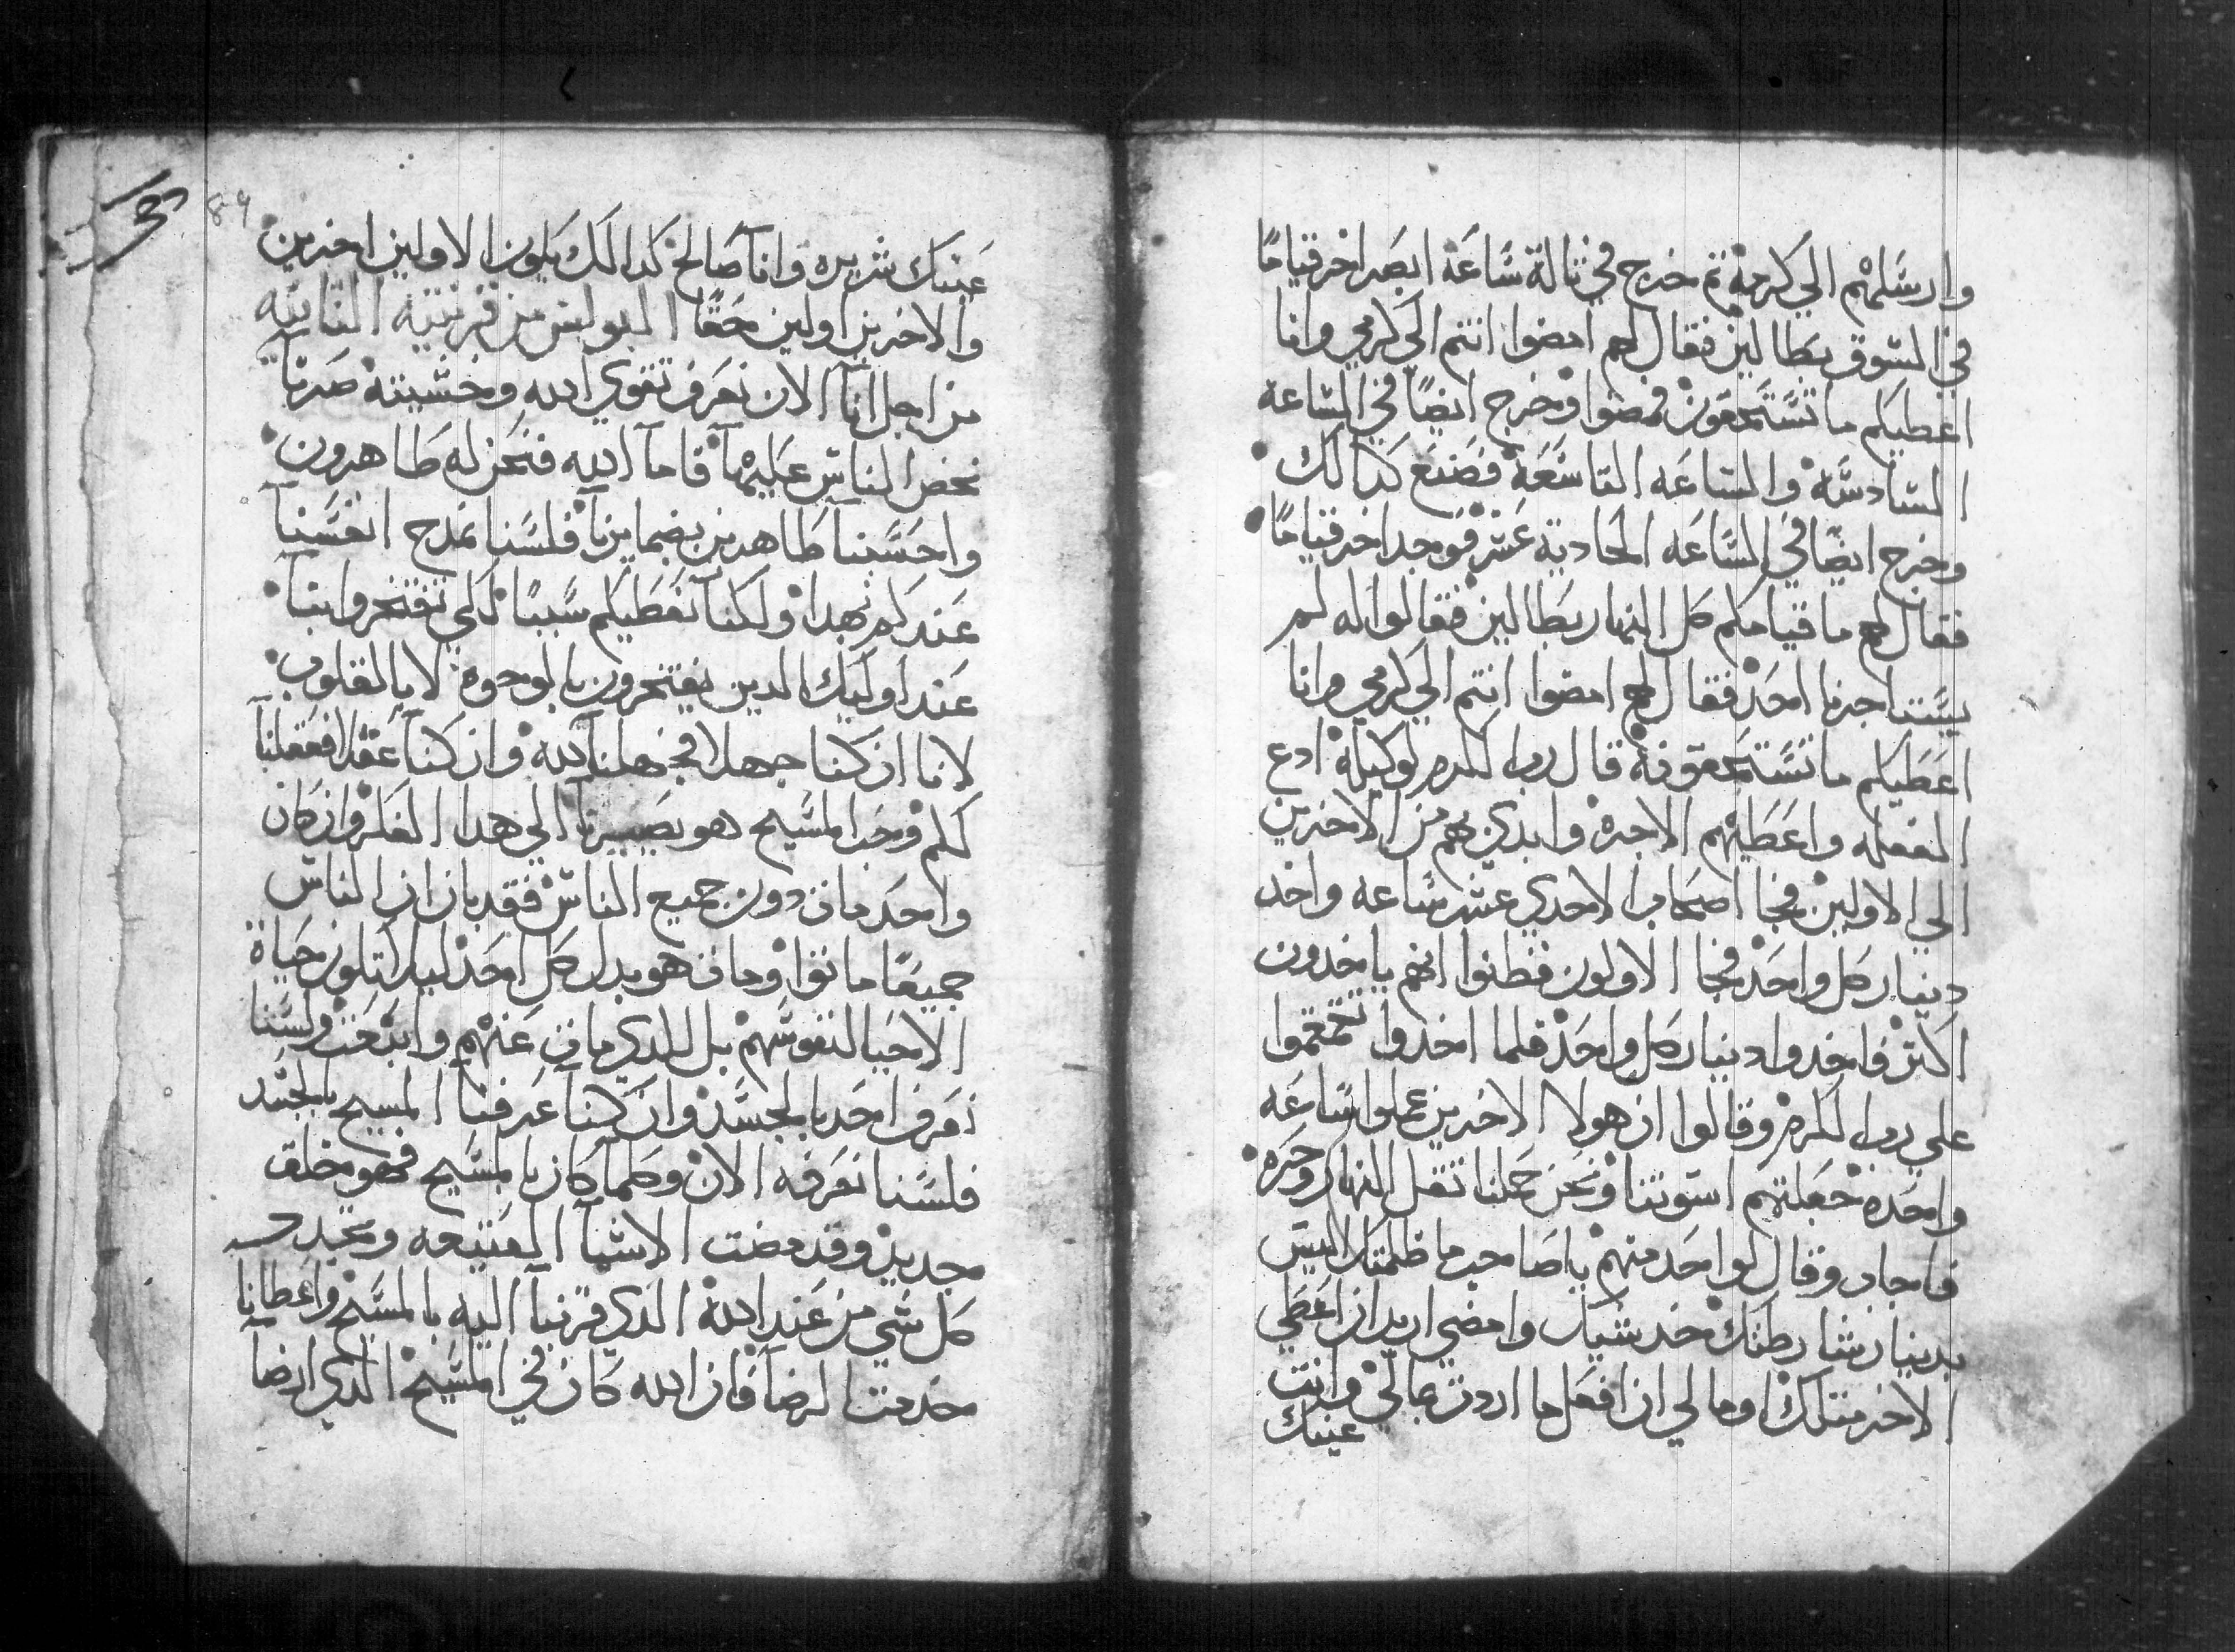 وارسلهم الي كرمه ثم خرج في تالتة ساعة ابصر اخر قياما
في السوق بطالين فقال لهم امضوا انتم الي كرمي وانا
اعطيكم ما تستحقون فمضوا وخرج ايضا في الساعه
السادسه والساعه التاسعه فصنع كدالك
وخرج ايضا في الساعه الحادية عشر فوجد اخر قياما
فقال لهم ما قيامكم كل النهار بطالين فقالوا له لم
يستاجرنا احد فقال لهم امضوا انتم الي كرمي وانا
اعطيكم ما تستحقونه قال رب الكرم لوكيله ادع
الفعله واعطيهم الاجره وابدي بهم من الاخرين
الي الاولين فجا اصحاب الاحدي عشر ساعه واخد
دينار كل واحد فجا الاولون فظنوا انهم ياخدون
اكتر فاخدوا دينار كل واحد فلما اخدوا تقمقموا
علي رب الكرم وقالوا ان هولا الاخرين عملوا ساعه
واحده جعلتهم اسوتنا ونحن حملنا تقل النهار وحره
فاجاب وقال لواحد منهم ياصاحب ما ظلمتك اليس
بدينار شارطتك خد شيك وامضي اريد ان اعطي
الاخر متلك اوما لي ان افعل ما اردت بمالي وانت
عينك
89
عينك شريره وانا صالح كدالك يكون الاولين اخرين
والاخرين اولين حقا البولس من قرنتيه التانيه
من اجل انا الان نعرف تقوي الله وخشيته صرنا
نحض الناس عليهما فاما الله فنحن له طاهرون
واحسبنا طاهرين بضمايرنا فلسنا نمدح انفسنا
عندكم بهدا ولكنا نعطيكم سببا لكي تفتخروا بنا
عند اوليك الدين يفتخرون بالوجوه لا بالقلوب
لانا ان كنا جهلا فجهلنا لله وان كنا عقلا فعقلنا
لكم وحب المسيح هو يصيرنا الي هدا الفكر وان كان
واحد مات دون جميع الناس فقد بان ان الناس
جميعا ماتوا ومات هو بدل كل احد ليلا تكون حياة
الاحيا لنفوسهم بل للدي مات عنهم وانبعت ولسنا
نعرف احد بالجسد وان كنا عرفنا المسيح بالجسد
فلسنا نعرفه الان وكلما كان بالمسيح فهو مخلق
جديد وقد مضت الاشيا العتيقه وتجدد
كل شي من عند الله الدي قربنا اليه بالمسيح واعطانا
خدمت الرضا فان الله كان في المسيح الدي ارضا